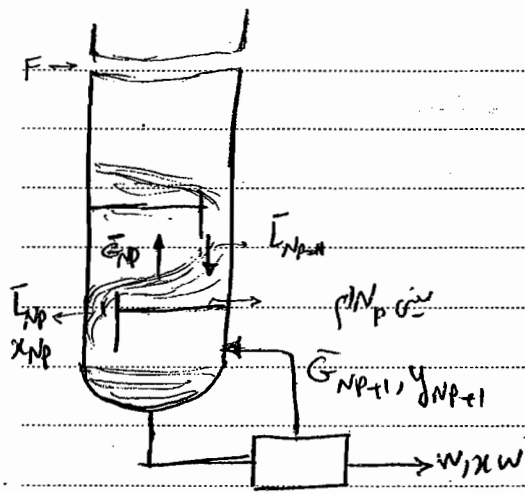 F →
L̄_{Np-1}
Ḡ_{Np}
L̄_{Np}
x_{Np}
سینی N_p ام
Ḡ_{Np+1}, y_{Np+1}
W, xw